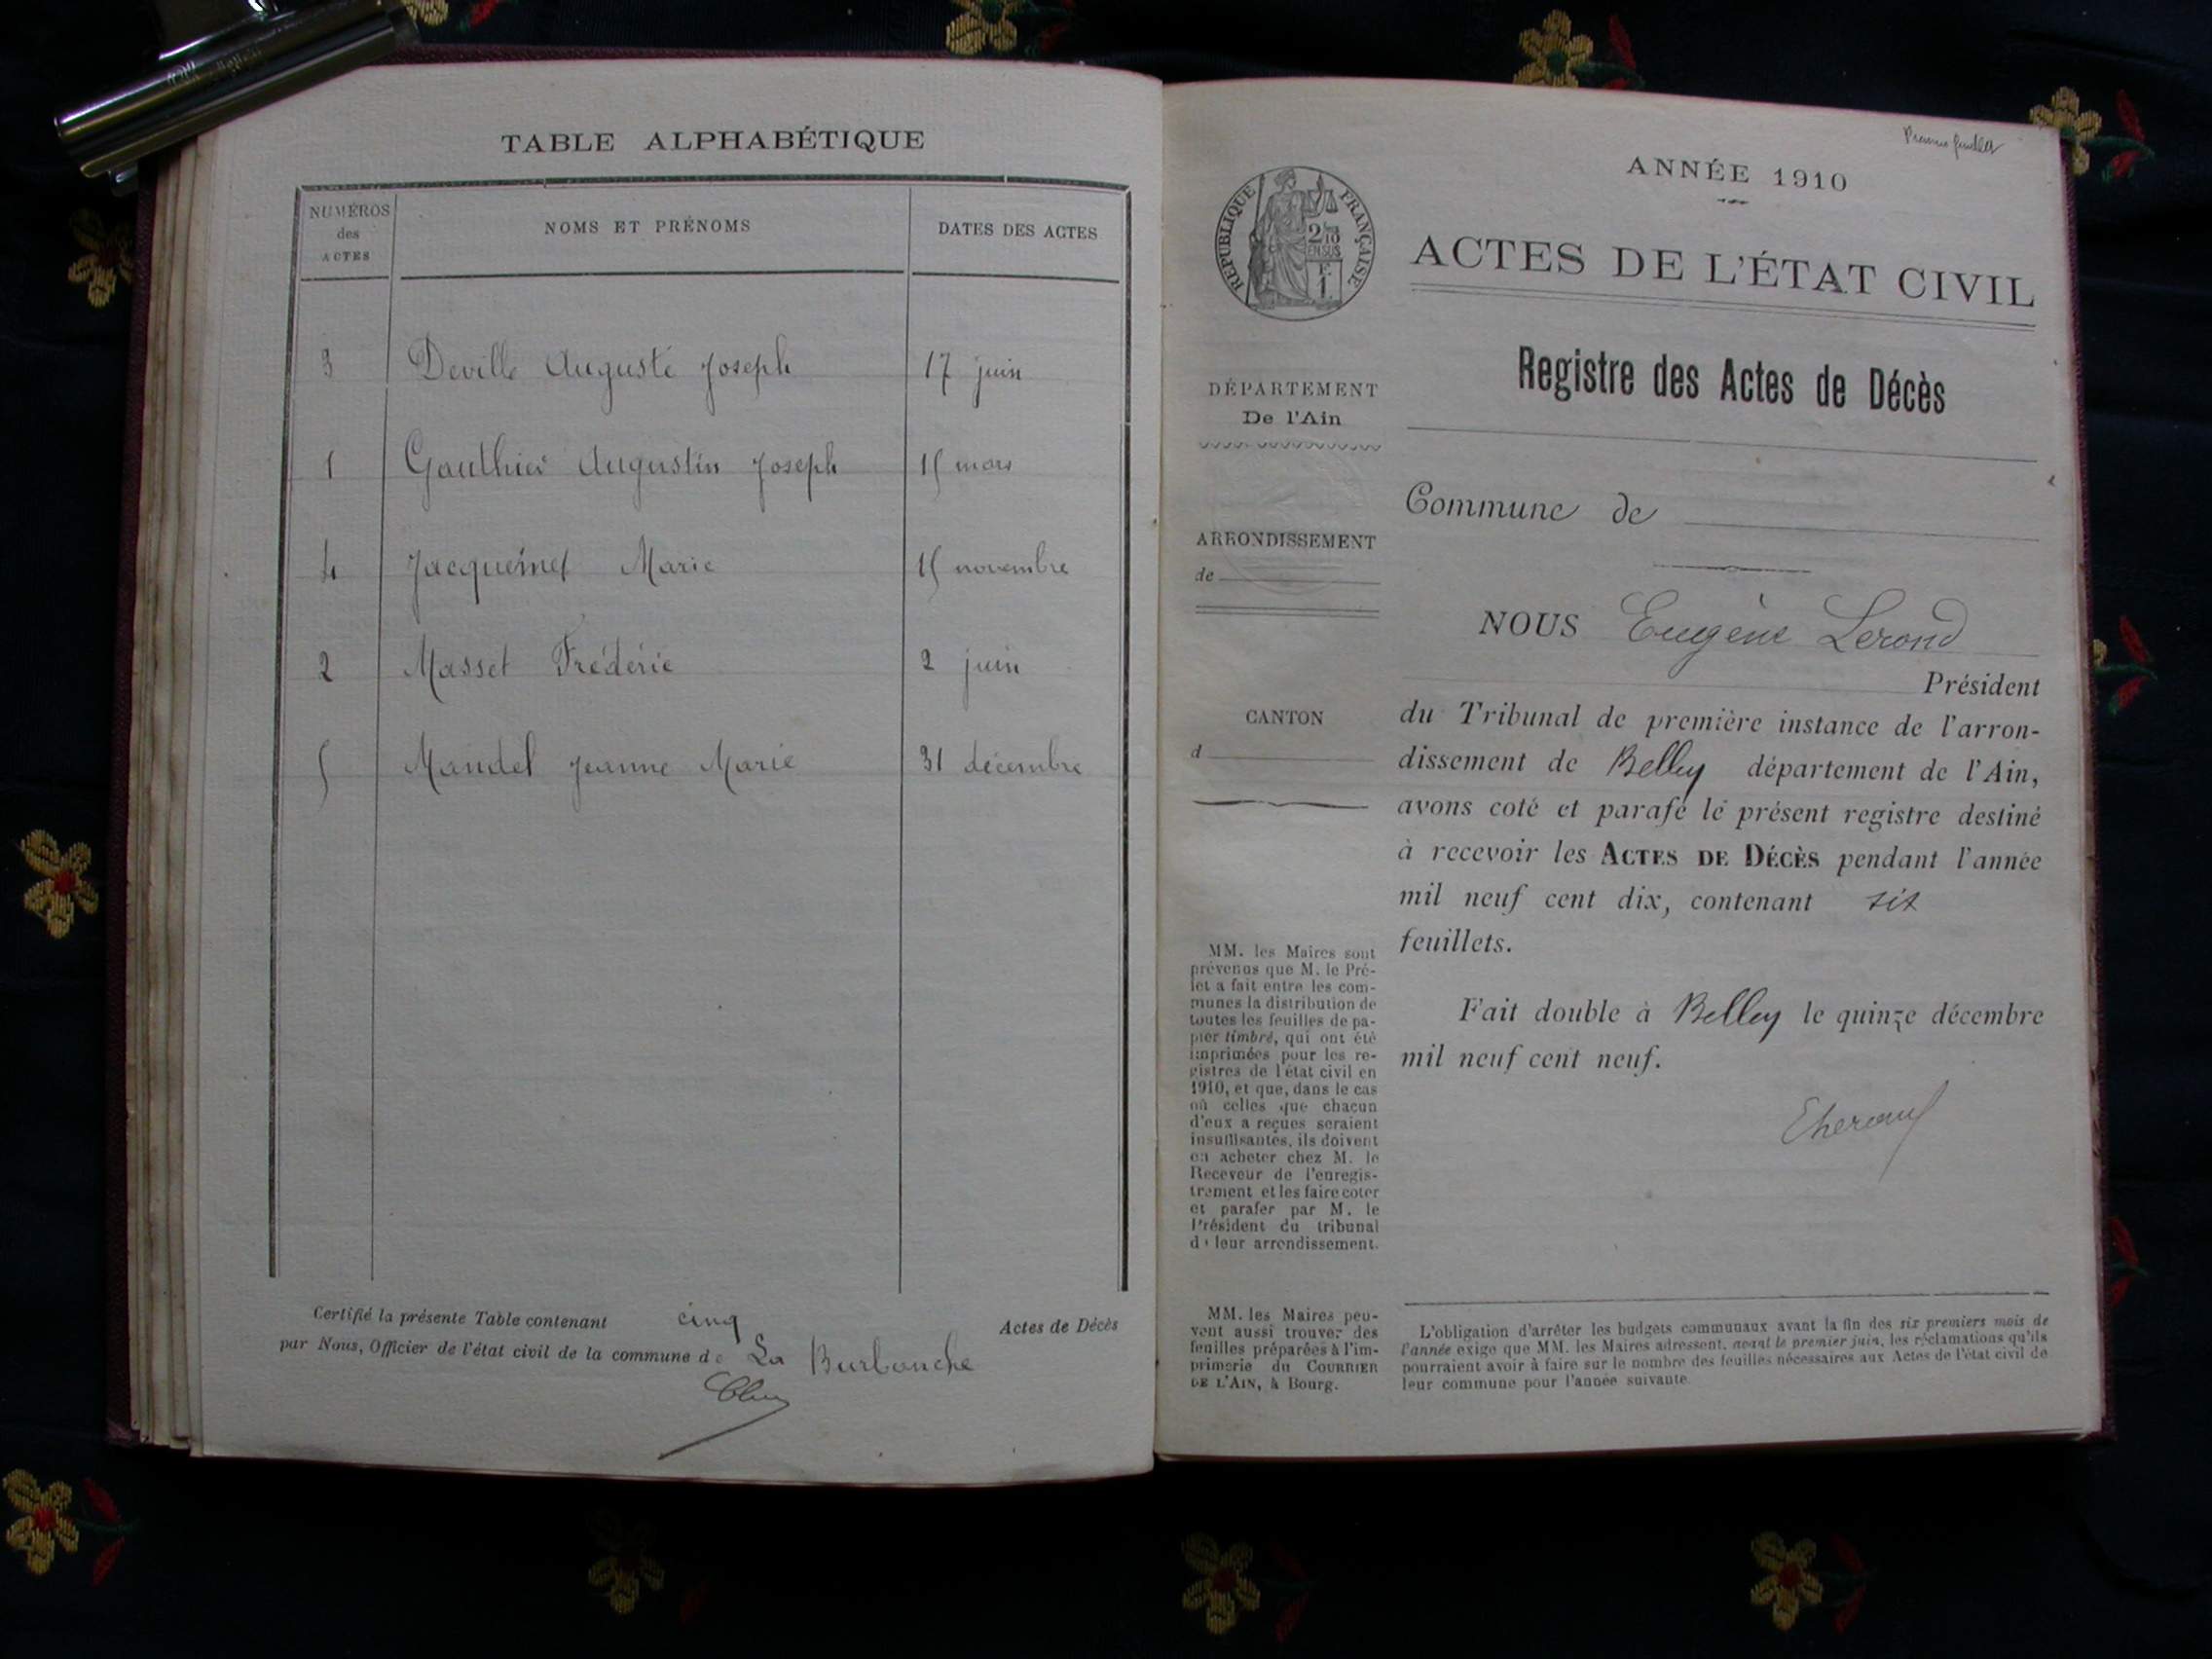 TABLE ALPHABÉTIQUE
NUMÉROS des ACTES
NOMS ET PRÉNOMS
DATES DES ACTES
3 Deville Auguste Joseph 17 juin
1 Gauthier Augustin Joseph 15 mars
4 Jacquemet Marie 15 novembre
2 Masset Frédéric 2 juin
5 Mandel Jeanne Marie 31 décembre
Certifié la présente Table contenant cinq Actes de Décès
par Nous, Officier de l'état civil de la commune de La Burbanche
ANNÉE 1910
RÉPUBLIQUE FRANÇAISE
2/10
EN SUS
F.
1
ACTES DE L'ÉTAT CIVIL
Registre des Actes de Décès
DÉPARTEMENT
De l'Ain
ARRONDISSEMENT
de
CANTON
d
MM. les Maires sont
prévenus que M. le Pré-
fet a fait entre les com-
munes la distribution de
toutes les feuilles de pa-
pier timbré, qui ont été
imprimées pour les re-
gistres de l'état civil en
1910, et que, dans le cas
où celles que chacun
d'eux a reçues seraient
insuffisantes, ils doivent
en acheter chez M. le
Receveur de l'enregis-
trement et les faire coter
et parafer par M. le
Président du tribunal
de leur arrondissement.
MM. les Maires peu-
vent aussi trouver des
feuilles préparées à l'im-
primerie du COURRIER
DE L'AIN, à Bourg.
Commune de
NOUS Eugène Lerond
Président
du Tribunal de première instance de l'arron-
dissement de Belley département de l'Ain,
avons coté et parafé le présent registre destiné
à recevoir les ACTES DE DÉCÈS pendant l'année
mil neuf cent dix, contenant six
feuillets.
Fait double à Belley le quinze décembre
mil neuf cent neuf.
L'obligation d'arrêter les budgets communaux avant la fin des six premiers mois de
l'année exige que MM. les Maires adressent, avant le premier juin, les réclamations qu'ils
pourraient avoir à faire sur le nombre des feuilles nécessaires aux Actes de l'état civil de
leur commune pour l'année suivante.